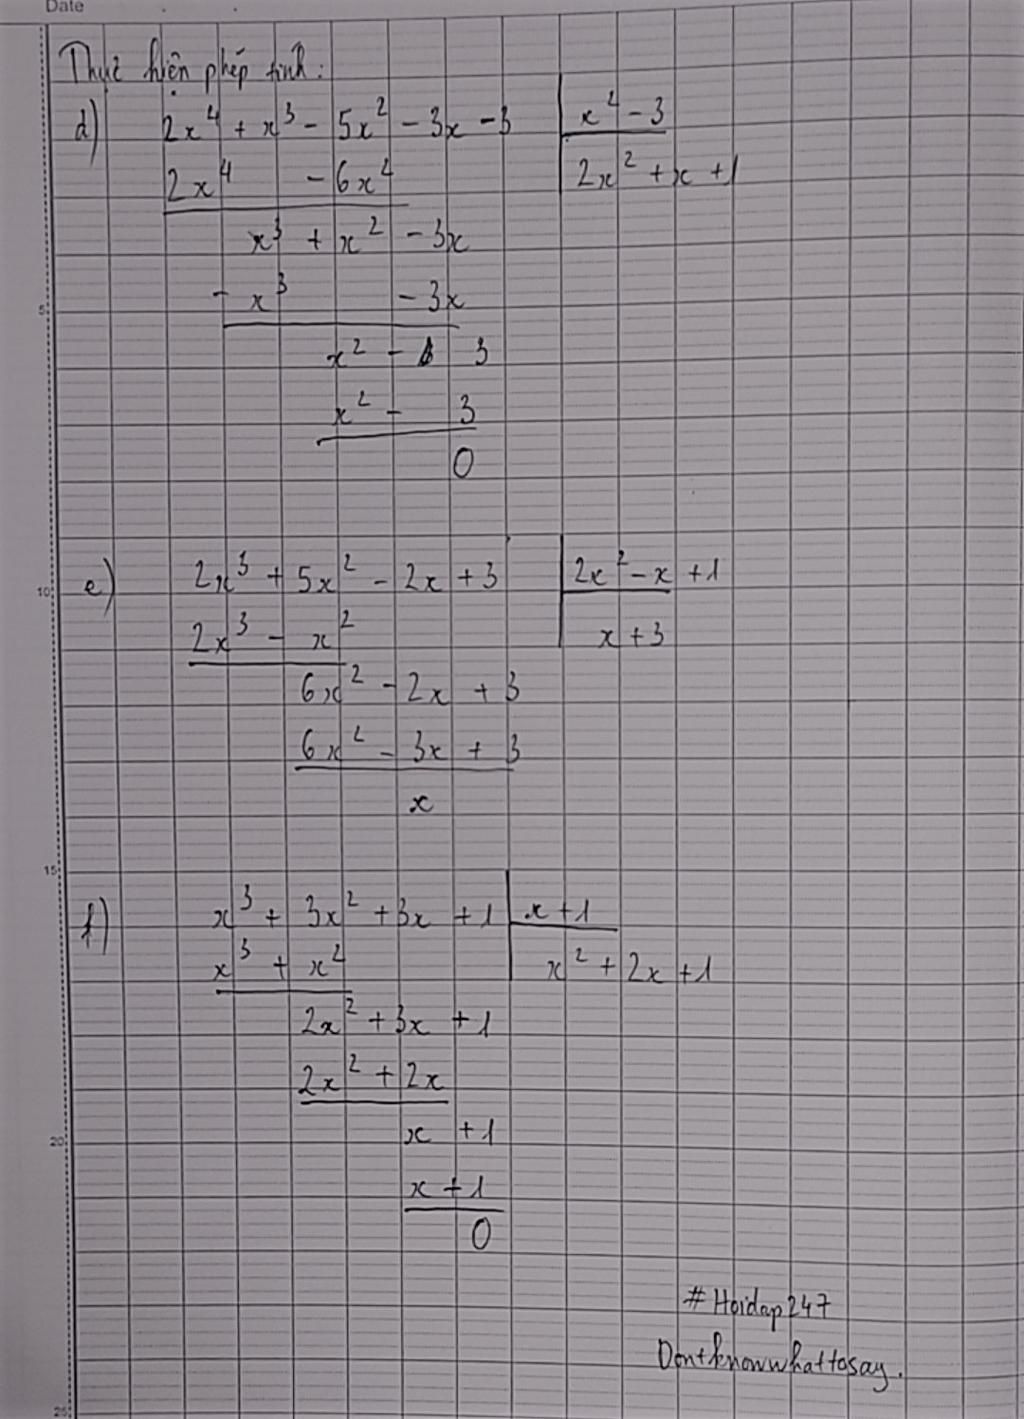 Date
Thực hiện phép tính:
d) 2x⁴ + x³ - 5x² - 3x - 3 | x² - 3
2x⁴ - 6x² | 2x² + x + 1
x³ + x² - 3x
- x³ - 3x
x² - 3
x² - 3
0
e) 2x³ + 5x² - 2x + 3 | 2x² - x + 1
10
2x³ - x² | x + 3
6x² - 2x + 3
6x² - 3x + 3
x
15
f) x³ + 3x² + 3x + 1 | x + 1
x³ + x² | x² + 2x + 1
2x² + 3x + 1
2x² + 2x
20
x + 1
x + 1
0
# Hoidap247
Dontknowwhattosay.
25